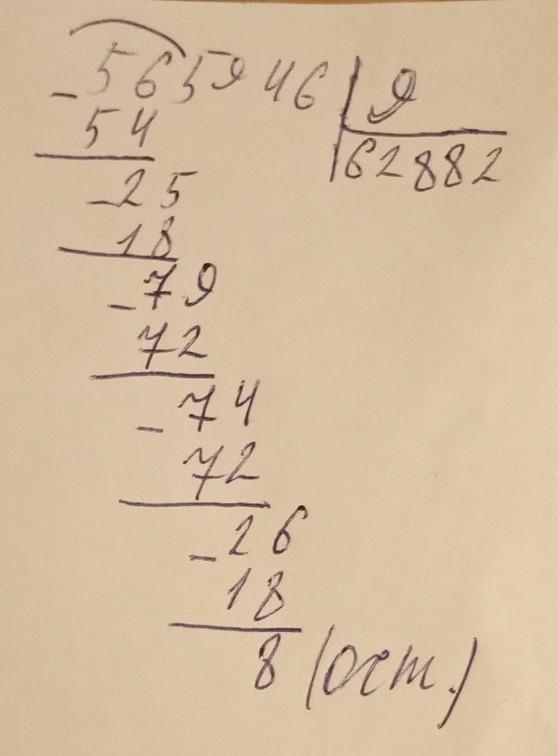 - 565946 | 9
54 | 62882
- 25
18
- 79
72
- 74
72
- 26
18
8 (ост.)